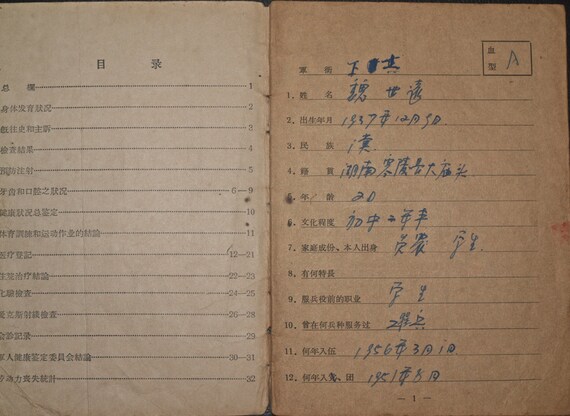 目 录
总 欄 1
身体发育狀況 2
既往史和主訴 3
檢查結果 4
預防注射 5
牙齿和口腔之狀況 6—9
健康狀況总鉴定 10
体育訓練和运动作业的結論 11
医疗登記 12—21
住院治疗結論 22—23
化驗檢查 24—25
爱克斯射綫檢查 26—28
会診記录 29
軍人健康鉴定委员会結論 30—31
劳动力丧失統計 32
血型 A
軍 銜 下士
1. 姓 名 魏世遠
2. 出生年月 1937年12月9日
3. 民 族 漢
4. 籍 貫 湖南
5. 年 龄 20
6. 文化程度 初中二年半
7. 家庭成份、本人出身 贫農 学生
8. 有何特長
9. 服兵役前的职业 学生
10. 曾在何兵种服务过 工程兵
11. 何年入伍 1956年3月1日
12. 何年入党、团 1951年5月
— 1 —